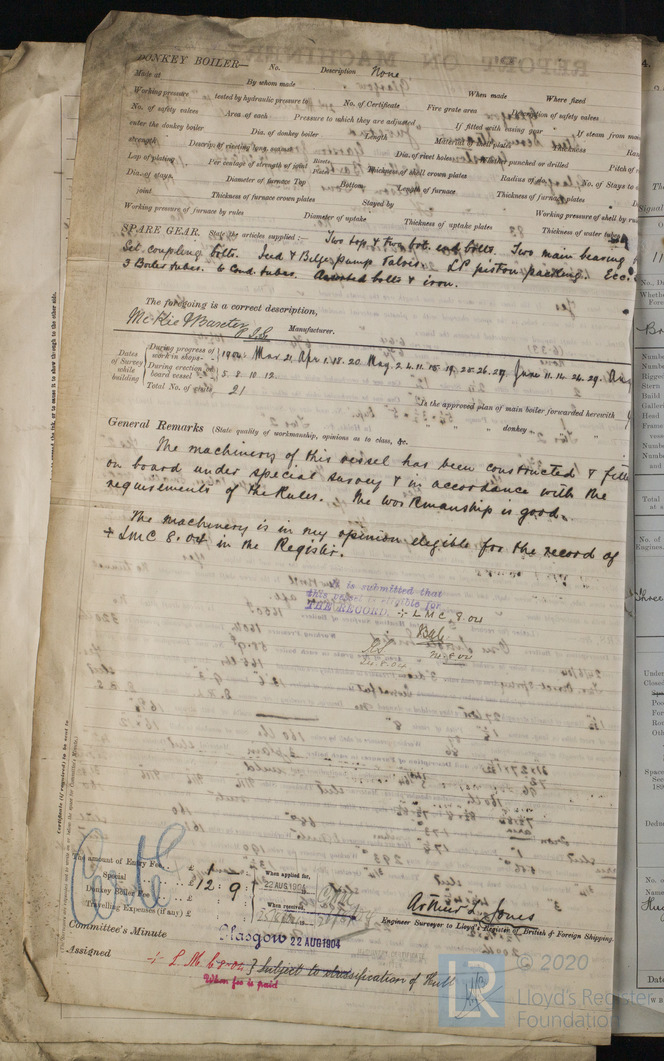 DONKEY BOILER— No. Description None
Made at By whom made When made Where fixed
Working pressure tested by hydraulic pressure to No. of Certificate Fire grate area Description of safety valves
No. of safety valves Area of each Pressure to which they are adjusted If fitted with easing gear If steam from main
enter the donkey boiler Dia. of donkey boiler Length Material of shell plates Thickness
strength Descrip. of riveting long. seams Dia. of rivet holes Whether punched or drilled Pitch of
Lap of plating Per centage of strength of joint Rivets Plates Thickness of shell crown plates Radius of do. No. of Stays to
Dia. of stays. Diameter of furnace Top Bottom Length of furnace Thickness of furnace plates
joint Thickness of furnace crown plates Stayed by Working pressure of shell by
Working pressure of furnace by rules Diameter of uptake Thickness of uptake plates Thickness of water tubes
SPARE GEAR. State the articles supplied:— Two top & two bot. end bolts. Two main bearing
Set coupling bolts. Feed & Bilge pump Valves. L P piston packing. Ecc:
3 Boiler tubes. 6 Cond. tubes. Assorted bolts & iron.
The foregoing is a correct description,
McKie & Baxter Manufacturer.
Dates of Survey while building
During progress of work in shops— 1904: Mar 21 Apr 1. 18. 20 May 2. 4. 11. 15. 19. 25. 26. 27 June 11. 14. 24. 29.
During erection on board vessel 5. 8. 10. 12.
Total No. of visits 21
Is the approved plan of main boiler forwarded herewith
" " " donkey " " "
General Remarks (State quality of workmanship, opinions as to class, &c.
The machinery of this vessel has been constructed & fitted
on board under special survey & in accordance with the
requirements of the Rules. The workmanship is good.
The machinery is in my opinion eligible for the record of
+ LMC 8.04 in the Register.
It is submitted that
this vessel is eligible for
THE RECORD. + LMC 8.04
24.8.04
Certificate (if required) to be sent to
The amount of Entry Fee .. £ 1
Special .. £ 12 : 9
Donkey Boiler Fee .. £
Travelling Expenses (if any) £
When applied for,
22 AUG 1904
When received,
Arthur L. Jones
Engineer Surveyor to Lloyd's Register of British & Foreign Shipping.
Committee's Minute Glasgow 22 AUG 1904
Assigned + L.M.C 8.04 } Subject to classification of Hull
When fee is paid
© 2020
LR
Lloyd's Register
Foundation